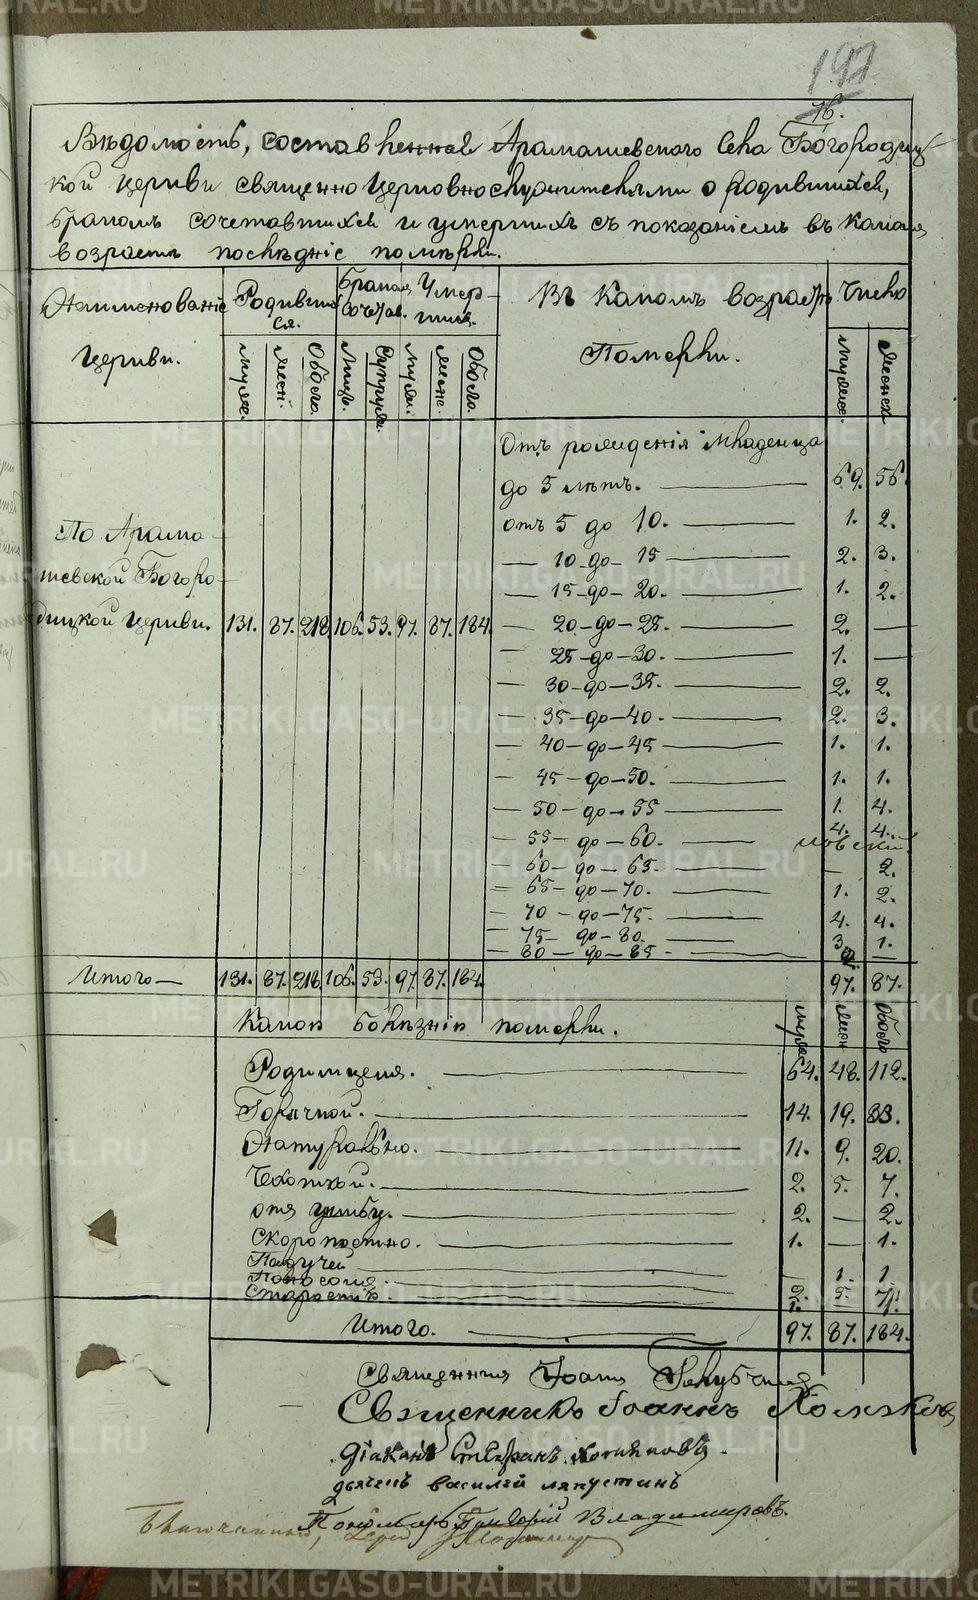 197
76.
Вѣдомость, составленная Арамашевскаго Села Богородиц-
кой Церкви священно церковнослужителями о родившихся,
бракомъ сочетавшихся и умершихъ съ показаніемъ въ какомъ
возрастѣ послѣдніе померли.
Наименованіе Церкви.
Родившихся.
Бракомъ сочетав.
Умершихъ.
Въ какомъ возрастѣ Померли.
Число
муже. женс. Обоего. Лицъ. Супруж. мужс. женс. Обоего.
мужес. женск.
Отъ рожденія младенца
до 5 лѣтъ. 69. 56.
отъ 5 до 10. 1. 2.
— 10 до 15 2. 3.
— 15 до 20. 1. 2.
По Арама-
шевской Богоро-
дицкой Церкви. 131. 87. 218. 106. 53. 97. 87. 184.
— 20 до 25. 2. —
— 25 до 30. 1. —
— 30 до 35. 2. 2.
— 35 до 40. 2. 3.
— 40 до 45 1. 1.
— 45 до 50. 1. 1.
— 50 до 55 1. 4.
— 55 до 60. 4. 4.
— 60 до 65. — 2.
— 65 до 70. 1. 2.
— 70 до 75. 4. 4.
— 75 до 80. 3. 1.
— 80 до 85 —
Итого — 131. 87. 218. 106. 53. 97. 87. 184. 97. 87.
Какою болѣзнію померли. мужес. жен. Обоего
Родимцемъ. 64. 48. 112.
Горячкой. 14. 19. 33.
Натурально. 11. 9. 20.
Чахоткой. 2. 5. 7.
отъ ушибу. 2. — 2.
Скоропостижно. 1. — 1.
Падучей — 1. 1.
Поносомъ. 2. 5. 7.
Старостію. 1.
Итого. 97. 87. 184.
Священникъ Іоаннъ
Священникъ Іоаннъ
Діаконъ Стефанъ
дьячекъ василей ляпустинъ
Пономарь Григорій Владимировъ.
METRIKI.GASO-URAL.RU